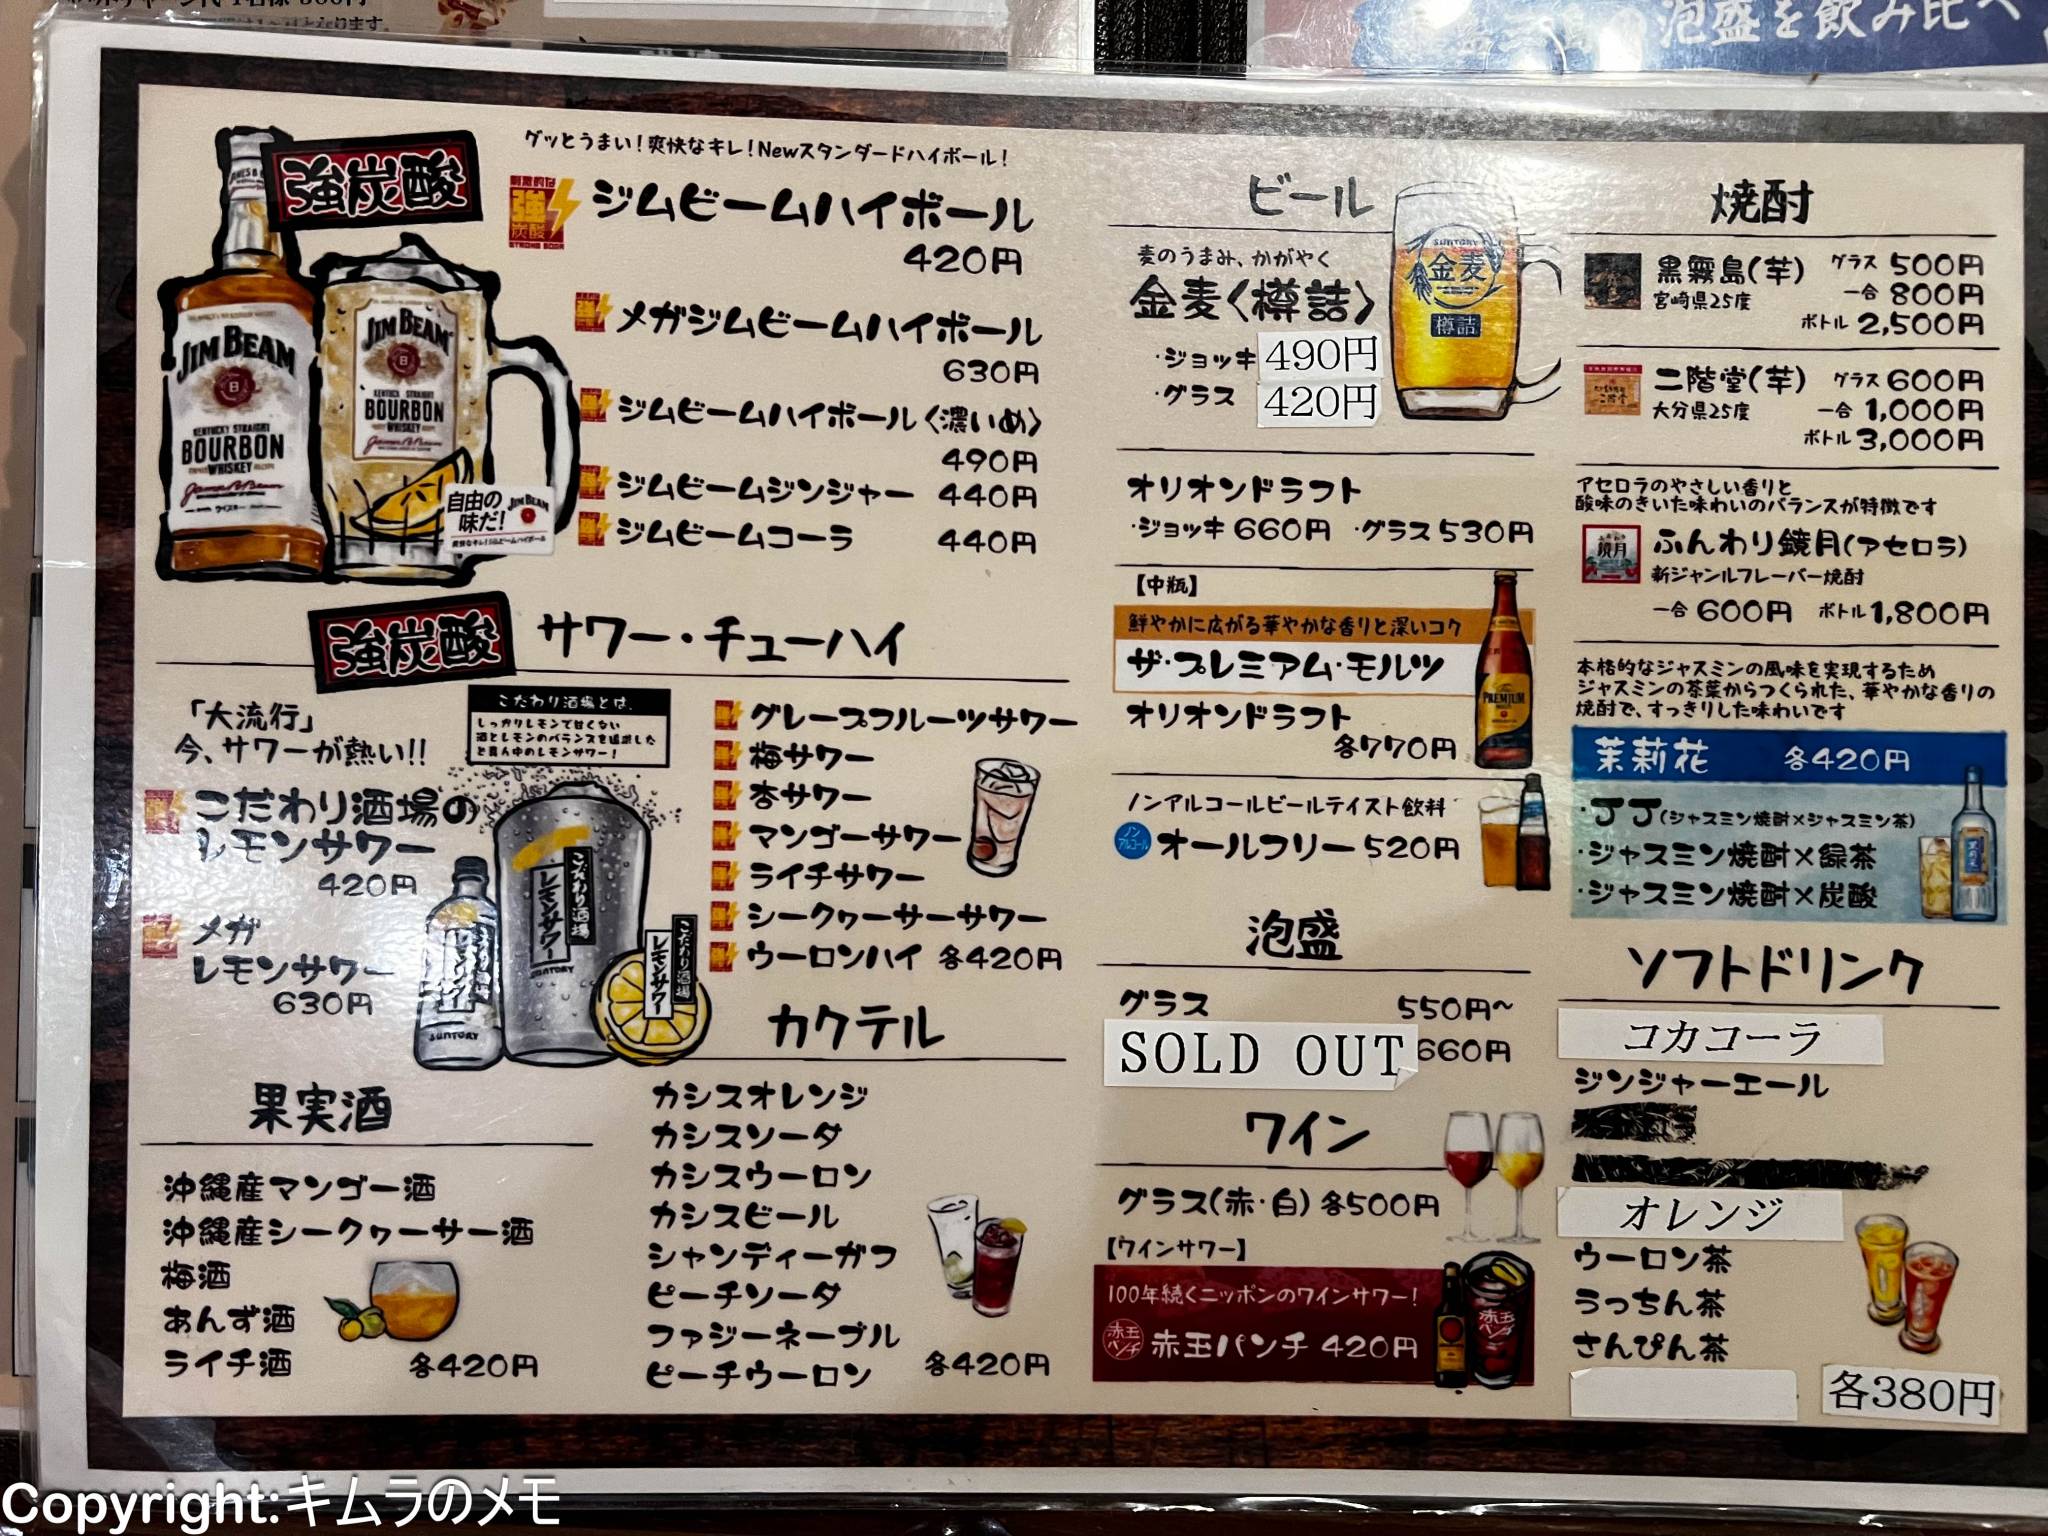 泡盛を飲み比べ
強炭酸
グッとうまい!爽快なキレ!Newスタンダードハイボール!
強炭酸
ジムビームハイボール
420円
メガジムビームハイボール
630円
ジムビームハイボール〈濃いめ〉
490円
ジムビームジンジャー 440円
ジムビームコーラ 440円
JIM BEAM
KENTUCKY STRAIGHT
BOURBON
WHISKEY
JIM BEAM
KENTUCKY STRAIGHT
BOURBON
WHISKEY
自由の
味だ!
JIM BEAM
強炭酸
サワー・チューハイ
「大流行」
今、サワーが熱い!!
こだわり酒場とは、
しっかりレモンで甘くない
酒とレモンのバランスを追求した
ど真ん中のレモンサワー!
こだわり酒場の
レモンサワー
420円
メガ
レモンサワー
630円
こだわり酒場
レモンサワー
SUNTORY
こだわり酒場
レモンサワー
SUNTORY
グレープフルーツサワー
梅サワー
杏サワー
マンゴーサワー
ライチサワー
シークヮーサーサワー
ウーロンハイ 各420円
果実酒
沖縄産マンゴー酒
沖縄産シークヮーサー酒
梅酒
あんず酒
ライチ酒 各420円
カクテル
カシスオレンジ
カシスソーダ
カシスウーロン
カシスビール
シャンディーガフ
ピーチソーダ
ファジーネーブル
ピーチウーロン 各420円
ビール
麦のうまみ、かがやく
金麦〈樽詰〉
・ジョッキ 490円
・グラス 420円
SUNTORY
金麦
樽詰
オリオンドラフト
・ジョッキ 660円 ・グラス 530円
【中瓶】
鮮やかに広がる華やかな香りと深いコク
ザ・プレミアム・モルツ
オリオンドラフト
各770円
PREMIUM
ノンアルコールビールテイスト飲料
ノンアルコール オールフリー 520円
泡盛
グラス 550円~
SOLD OUT 660円
ワイン
グラス(赤・白) 各500円
【ワインサワー】
100年続くニッポンのワインサワー!
赤玉パンチ 赤玉パンチ 420円
赤玉パンチ
焼酎
黒霧島(芋) グラス 500円
宮崎県25度 一合 800円
ボトル 2,500円
二階堂(芋) グラス 600円
大分県25度 一合 1,000円
ボトル 3,000円
アセロラのやさしい香りと
酸味のきいた味わいのバランスが特徴です
鏡月
ふんわり鏡月(アセロラ)
新ジャンルフレーバー焼酎
一合 600円 ボトル 1,800円
本格的なジャスミンの風味を実現するため
ジャスミンの茶葉からつくられた、華やかな香りの
焼酎で、すっきりした味わいです
茉莉花 各420円
・JJ(ジャスミン焼酎×ジャスミン茶)
・ジャスミン焼酎×緑茶
・ジャスミン焼酎×炭酸
ソフトドリンク
コカコーラ
ジンジャーエール
オレンジ
ウーロン茶
うっちん茶
さんぴん茶
各380円
Copyright:キムラのメモ